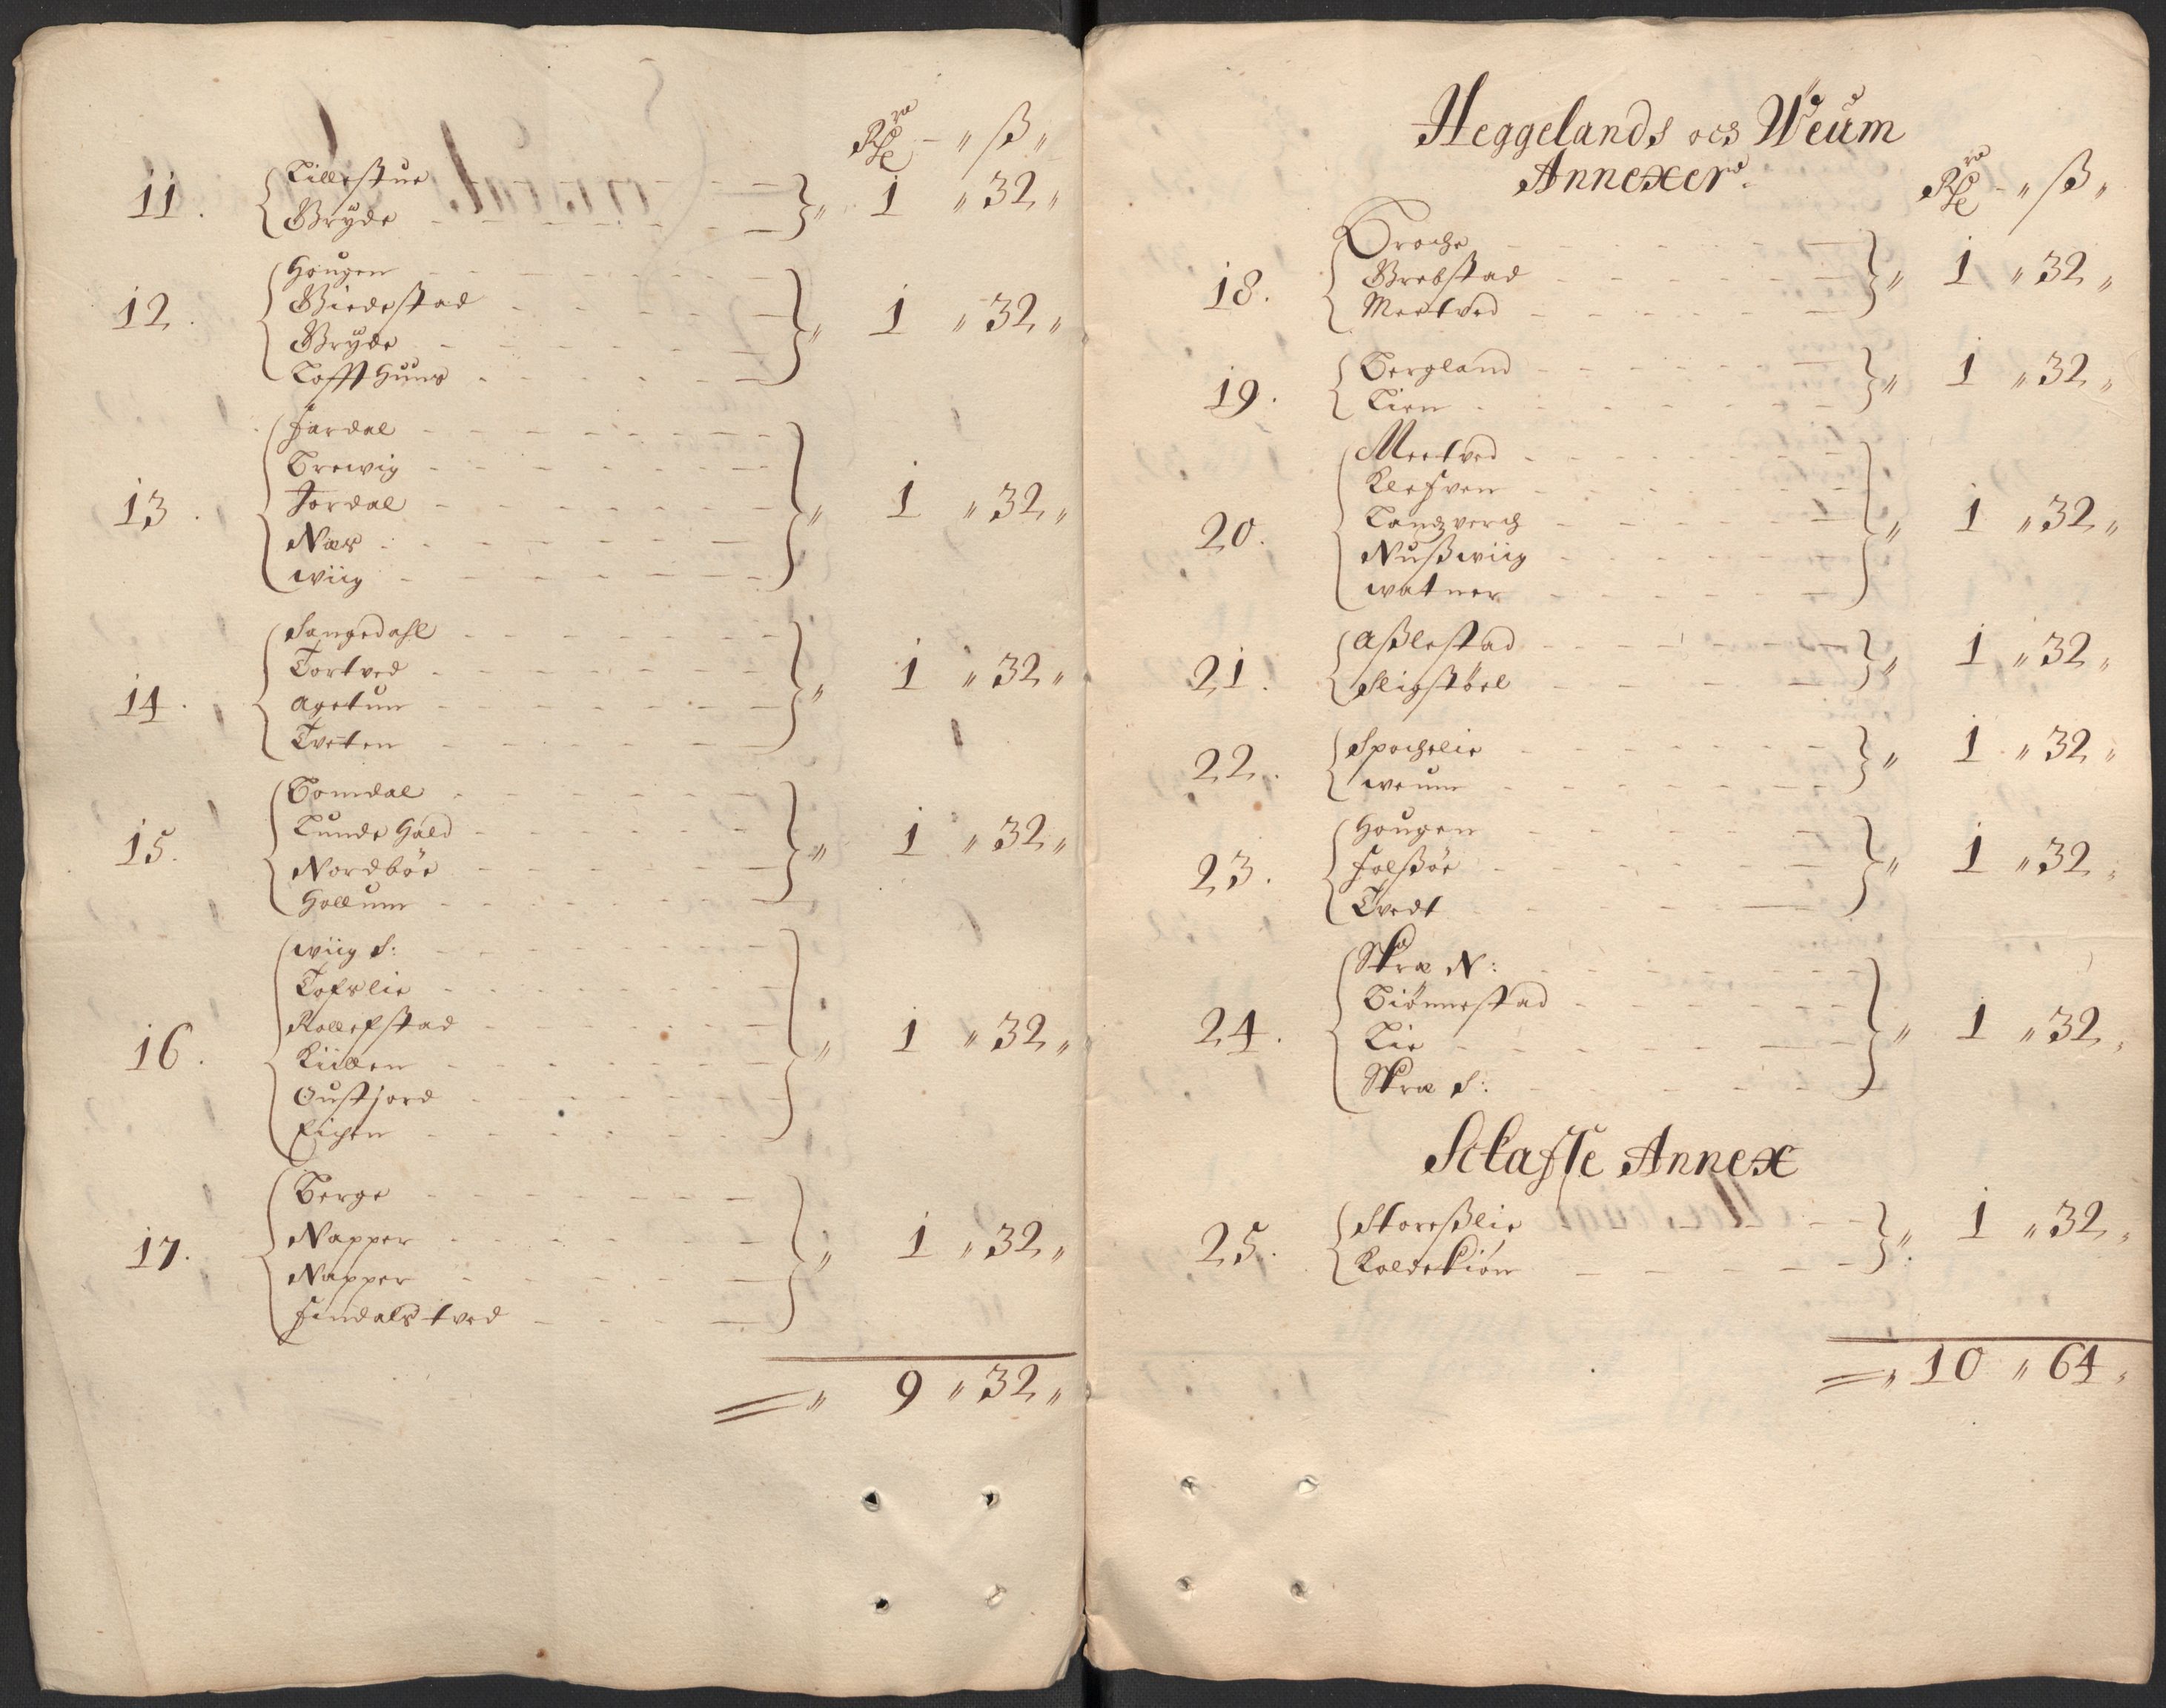 Rdlr - " ß "
11. Lillestue
Bryde " 1 " 32 "
12. Hougen
Biedestad
Bryde
Toffthuus " 1 " 32 "
13. Fardal
Brewig
Jordal
Næs
wiig " 1 " 32 "
14. Sangedahl
Tortved
Agetun
Tveten " 1 " 32 "
15. Bomdal
Lunde Hald
Nordböe
Hollum " 1 " 32 "
16. wiig S:
Tofslie
Rollefstad
Kiillen
Oustjord
Eichen " 1 " 32 "
17. Berge
Napper
Napper
Findalstved " 1 " 32 "
" 9 " 32 "
Heggelands och Weum
Annexer.
Rdlr - " ß "
18. Broche
Brebstad
Meetved " 1 " 32 "
19. Bergland
Lien " 1 " 32 "
20. Meetved
Klefven
Langverch
Nußwiig
watner " 1 " 32 "
21. Aßlestad
Sligstöel " 1 " 32 "
22. Spochelie
weum " 1 " 32 "
23. Hougen
Folßöe
Tvedt " 1 " 32 "
24. Skræ N:
Biönnestad
Lie
Skræ S: " 1 " 32 "
Sclafße Annex
25. Storeßlie
Koldekiön " 1 " 32 "
" 10 " 64 "